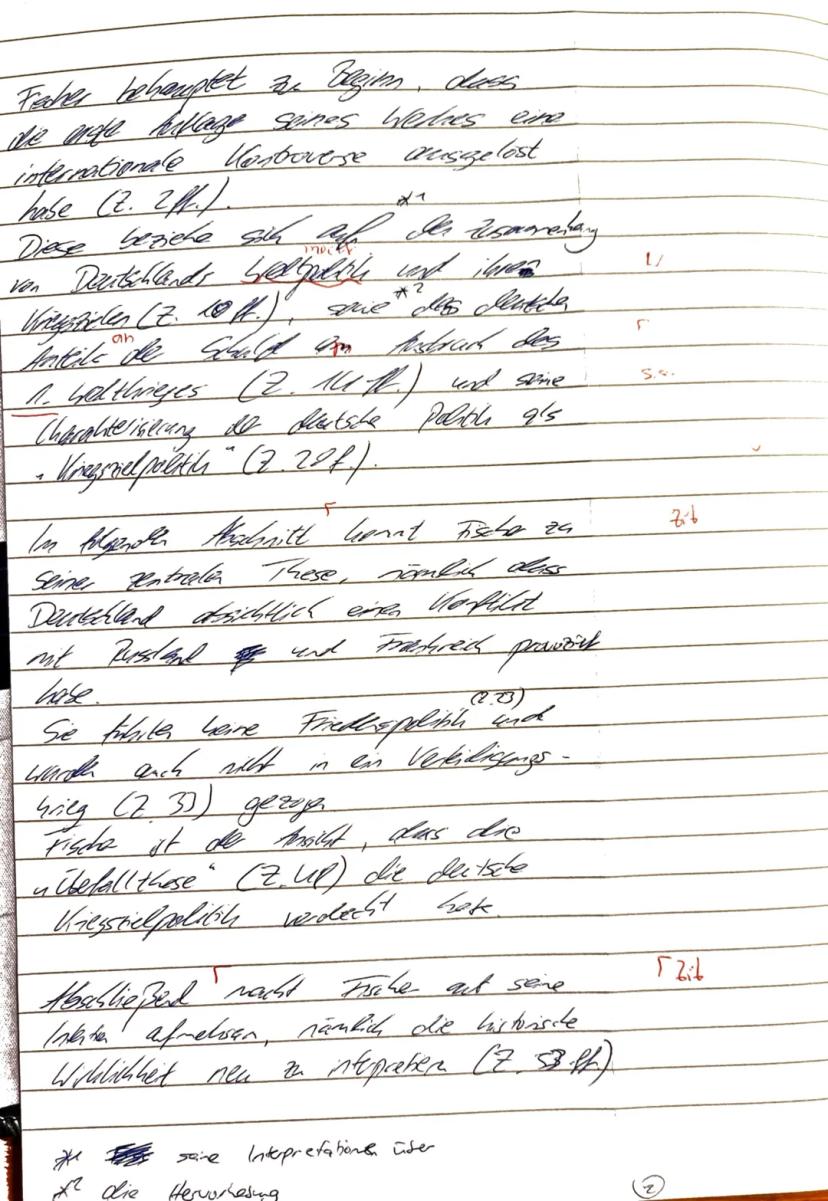 Fischer behauptet zu Beginn, dass
die erste Auflage seines Werkes eine
internationale Kontroverse ausgelöst
habe (Z. 2ff.).
*1
Diese beziehe sich auf den Zusammenhang
von Deutschlands Weltpolitik und ihren
Kriegszielen (Z. 10 ff.), sowie *2 des deutschen
Anteils an der Schuld am Ausbruch des
1. Weltkrieges (Z. 14 ff.) und seine
Charakterisierung der deutsche Politik als
„Kriegszielpolitik" (Z. 20f.).
Im folgenden Abschnitt kommt Fischer zu
Zit
seiner zentralen These, nämlich dass
Deutschland absichtlich einen Konflikt
mit Russland und Frankreich provoziert
habe.
(Z. 23)
Sie führten keine Friedenspolitik und
wurden auch nicht in ein Verteidigungs-
krieg (Z. 33) gezogen
Fischer ist der Ansicht, dass die
„Überfallthese" (Z. ) die deutsche
Kriegszielpolitik verdeckt habe.
Abschließend macht Fischer auf seine
Zit
aufmerksam, nämlich die historische
Wirklichkeit neu zu intepretieren (Z. 53 ff.)
*1 seine Interpretationen über
*2 die Hervorhebung
2